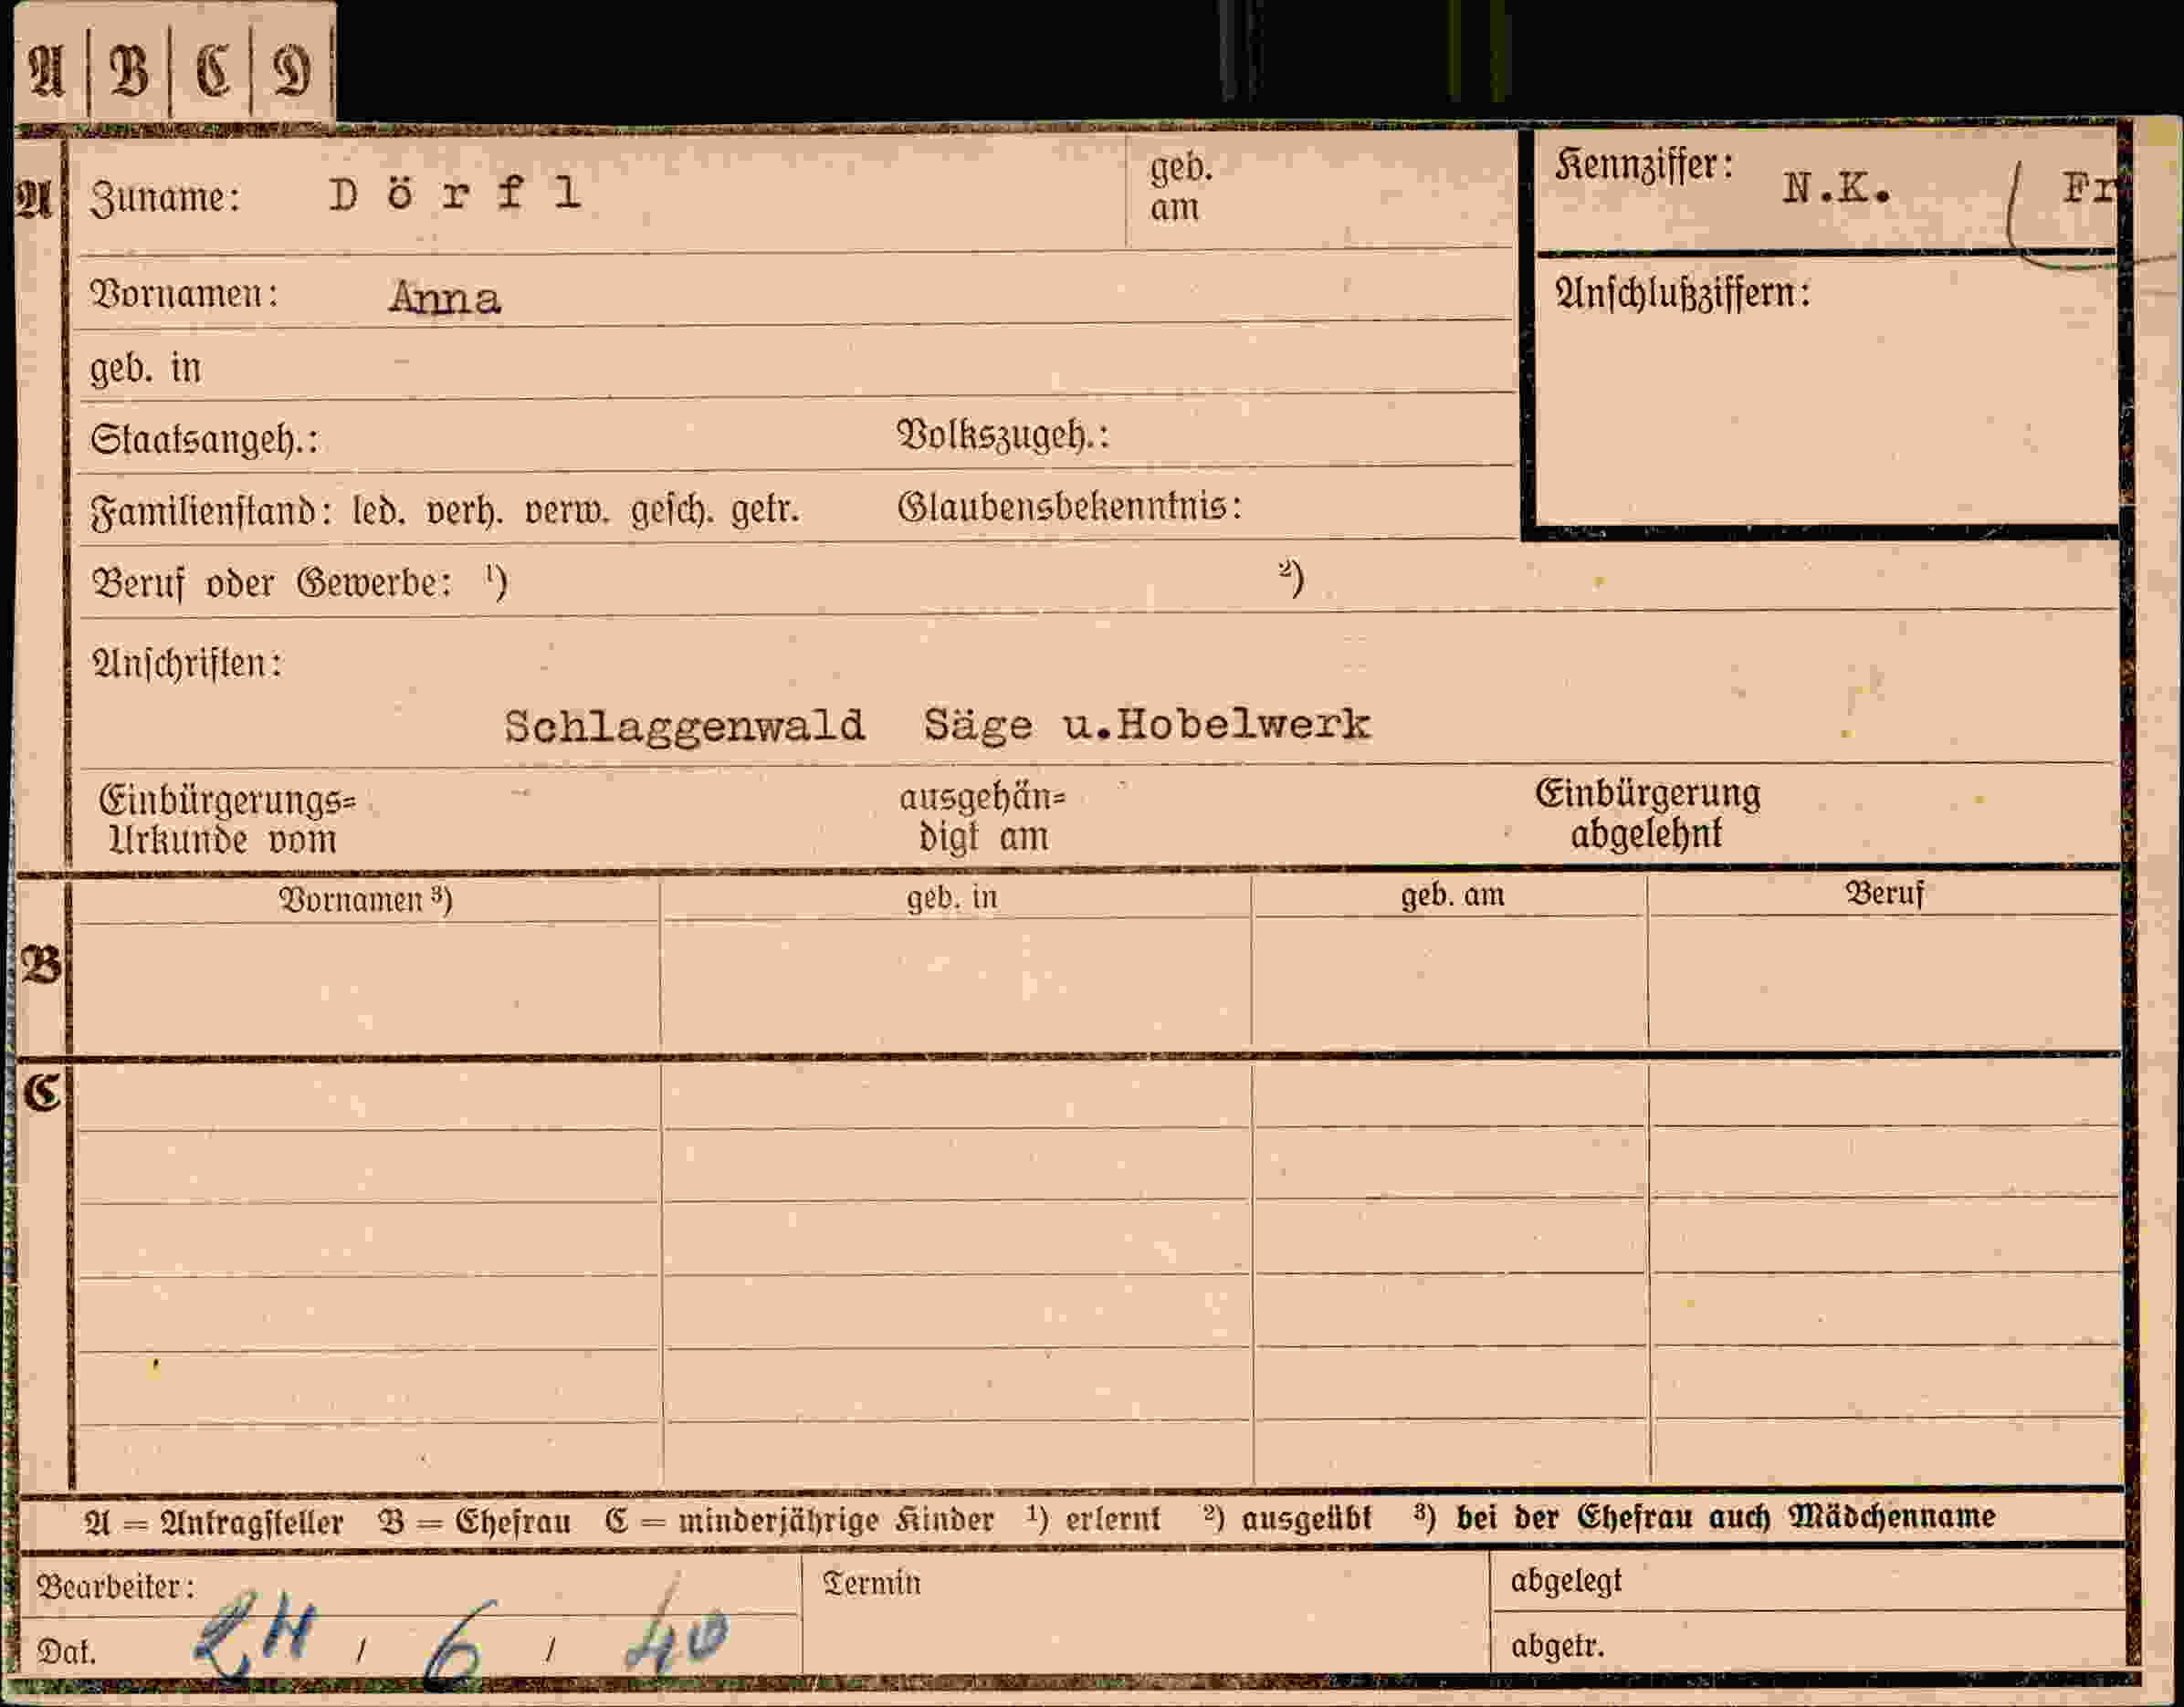 A | B | C | D
A Zuname: Dörfl geb. am Kennziffer: N.K. Fr
Vornamen: Anna Anschlußziffern:
geb. in
Staatsangeh.: Volkszugeh.:
Familienstand: led. verh. verw. gesch. getr. Glaubensbekenntnis:
Beruf oder Gewerbe: ¹) ²)
Anschriften:
Schlaggenwald Säge u.Hobelwerk
Einbürgerungs= ausgehän= Einbürgerung
Urkunde vom digt am abgelehnt
Vornamen ³) geb. in geb. am Beruf
B
C
A = Antragsteller B = Ehefrau C = minderjährige Kinder ¹) erlernt ²) ausgeübt ³) bei der Ehefrau auch Mädchenname
Bearbeiter: Termin abgelegt
Dat. 24 / 6 / 40 abgetr.